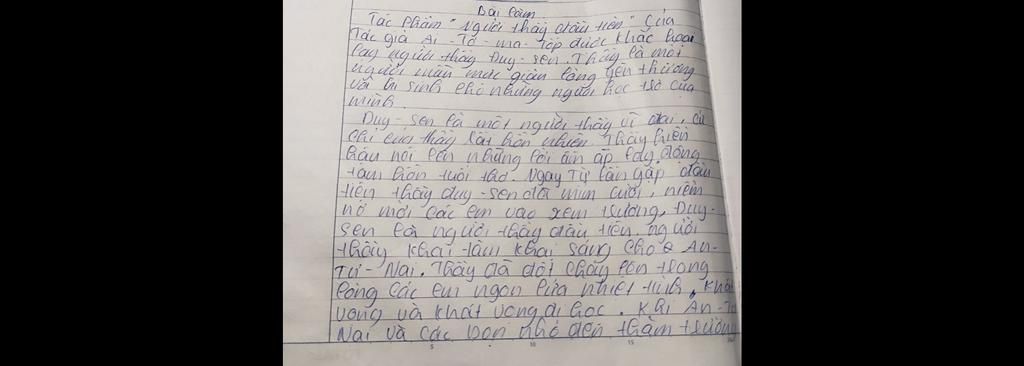 Bài làm
Tác phẩm "Người thầy đầu tiên" của
Tác giả Ai-Tơ-ma-Tốp được khắc họa
lay người thầy Đuy-sen. Thầy là một
người mẫu mực giàu lòng yên thương
và hi sinh cho những người học trò của
mình.
Duy-sen là một người thầy vĩ đại, cử
chỉ của thầy rất hồn nhiên. Thầy hiền
hậu nói lên những lời ấm áp lay động
tâm hồn tuổi thơ. Ngay từ lần gặp đầu
tiên thầy duy-sen đã mỉm cười, niềm
nở mời các em vào xem trường, Duy-
sen là người thầy đầu tiên. người
thầy khai tâm khai sáng cho An-
Tư-Nai. Thầy đã đốt cháy lên trong
lòng các em ngọn lửa nhiệt tình, khát
vọng và khát vọng đi học. Khi An-Tư
Nai và các bạn nhỏ đến thăm trường
5 10 15